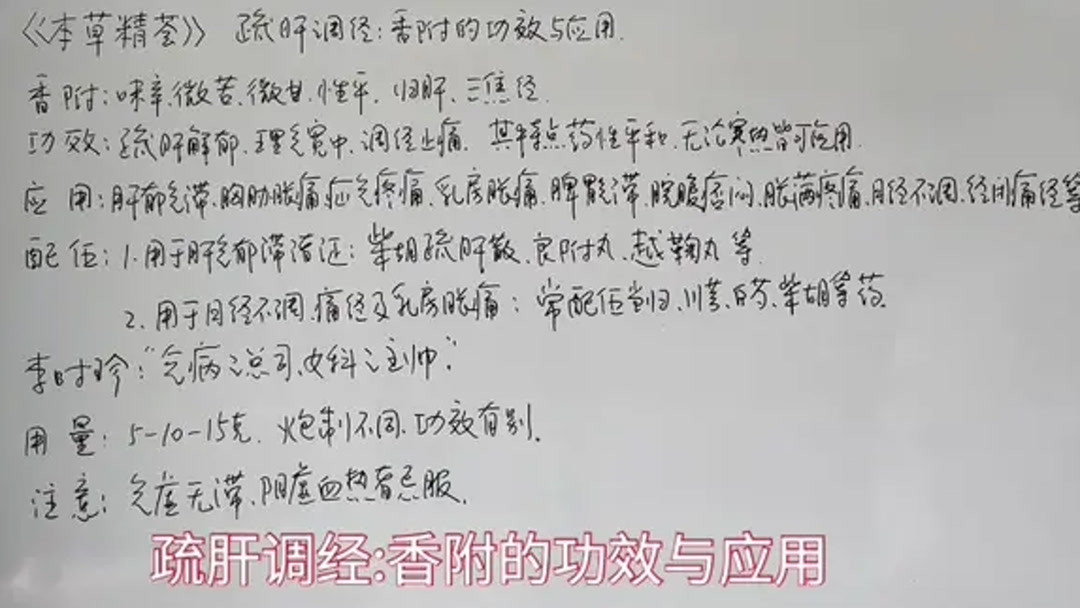 《《本草精荟》》 疏肝调经:香附的功效与应用.
香附:味辛、微苦、微甘,性平,归肝、三焦经.
功效:疏肝解郁.理气宽中、调经止痛. 其特点药性平和,无论寒热皆可应用.
应用:肝郁气滞、胸胁胀痛、疝气疼痛、乳房胀痛、脾胃气滞、脘腹痞闷、胀满疼痛、月经不调、经闭痛经等
配伍:1.用于肝气郁滞诸证:柴胡疏肝散、良附丸、越鞠丸等.
2、用于月经不调、痛经及乳房胀痛:常配伍当归、川芎、白芍、柴胡等药.
李时珍:“气病之总司、女科之主帅”.
用量:5-10-15克. 炮制不同、功效有别.
注意:气虚无滞、阴虚血热者忌服.
疏肝调经:香附的功效与应用